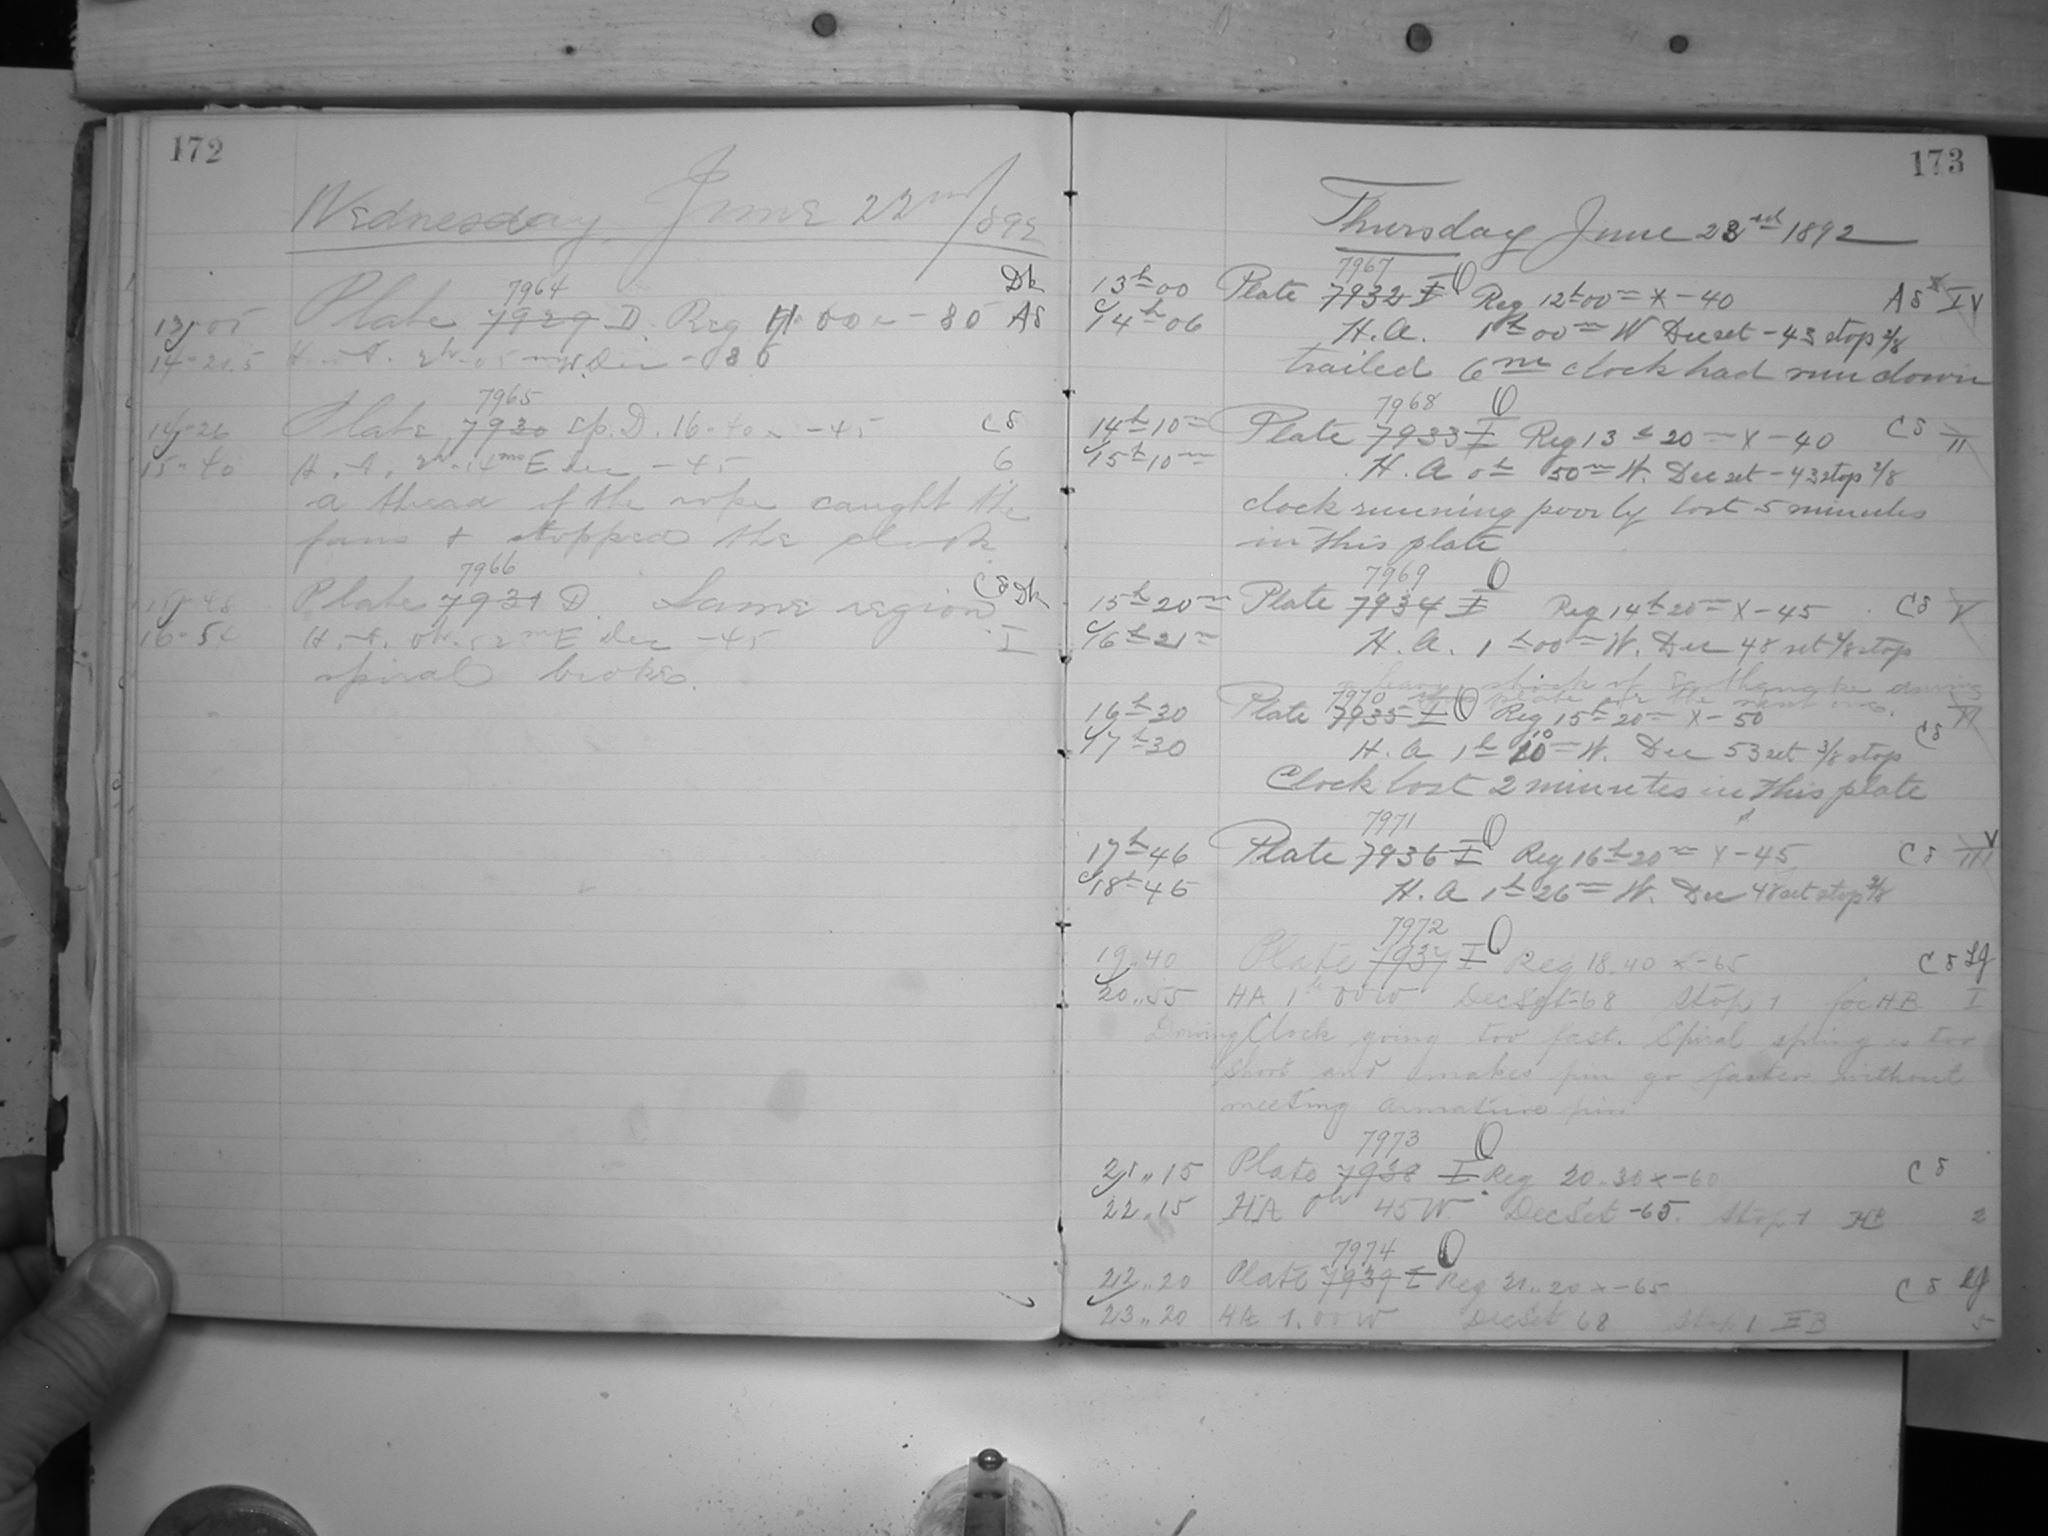 172
Wednesday June 22nd/892
7964 Dk
13-05 Plate 7929 D. Reg 11-00 x - 80 A8
14-20.5 H.A. 2h-05 m W Dec - 85
7965
14-26 Plate 7930 sp. D. 16-40 x -45 C8
15-40 H.A. E dec -45 6
a thread of the rope caught the
fans + stopped the clock
7966
15-48 Plate 7931 D. Same region C8 Dk
16-5 H.A. 0h. 52m E Dec -45 I
spiral broke.
173
Thursday June 23rd 1892
7967 O
13h 00 Plate 7932 I Reg 12h 00m x - 40 A8 IV
14h 06 H.A. 1h 00m W Dec set - 43 stop 2/8
trailed 6m clock had run down
7968 O
14h 10m Plate 7933 I Reg 13h 20m x - 40 C8 II
15h 10m H.A 0h 50m W. Dec set - 43 stop 2/8
clock running poorly lost 5 minutes
in this plate
7969 O
15h 20m Plate 7934 I Reg 14h 20m x - 45 C8 V
16h 21m H.A. 1h 00m W. Dec 48 set 4/8 stop
a heavy shock of Earthquake during
this plate or the next one.
7970 O
16h 30 Plate 7935 I Reg 15h 20m x - 50 C8 VI
17h 30 H.A 1h 10m W. Dec 53 set 3/8 stop
Clock lost 2 minutes in this plate
7971 O
17h 46 Plate 7936 I Reg 16h 20m x - 45 C8 III V
18h 46 H.A 1h 26m W. Dec 48 set stop 2/8
7972 O
19..40 Plate 7937 I Reg 18.40 x -65 C8
20..55 HA 1h 00 W Dec Set -68 Stop 1 for HB I
Driving Clock going too fast. Spiral spring is too
short and makes pin go faster without
meeting armature pin
7973 O
21..15 Plate 7938 I Reg 20.30 x -60 C8
22.15 HA 0h 45 W Dec Set -65. Stop 1 2
7974 O
22..20 Plate 7939 I Reg 21..20 x -65 C8
23..20 HA 1.00 W Dec Set 68 Stop 1 5